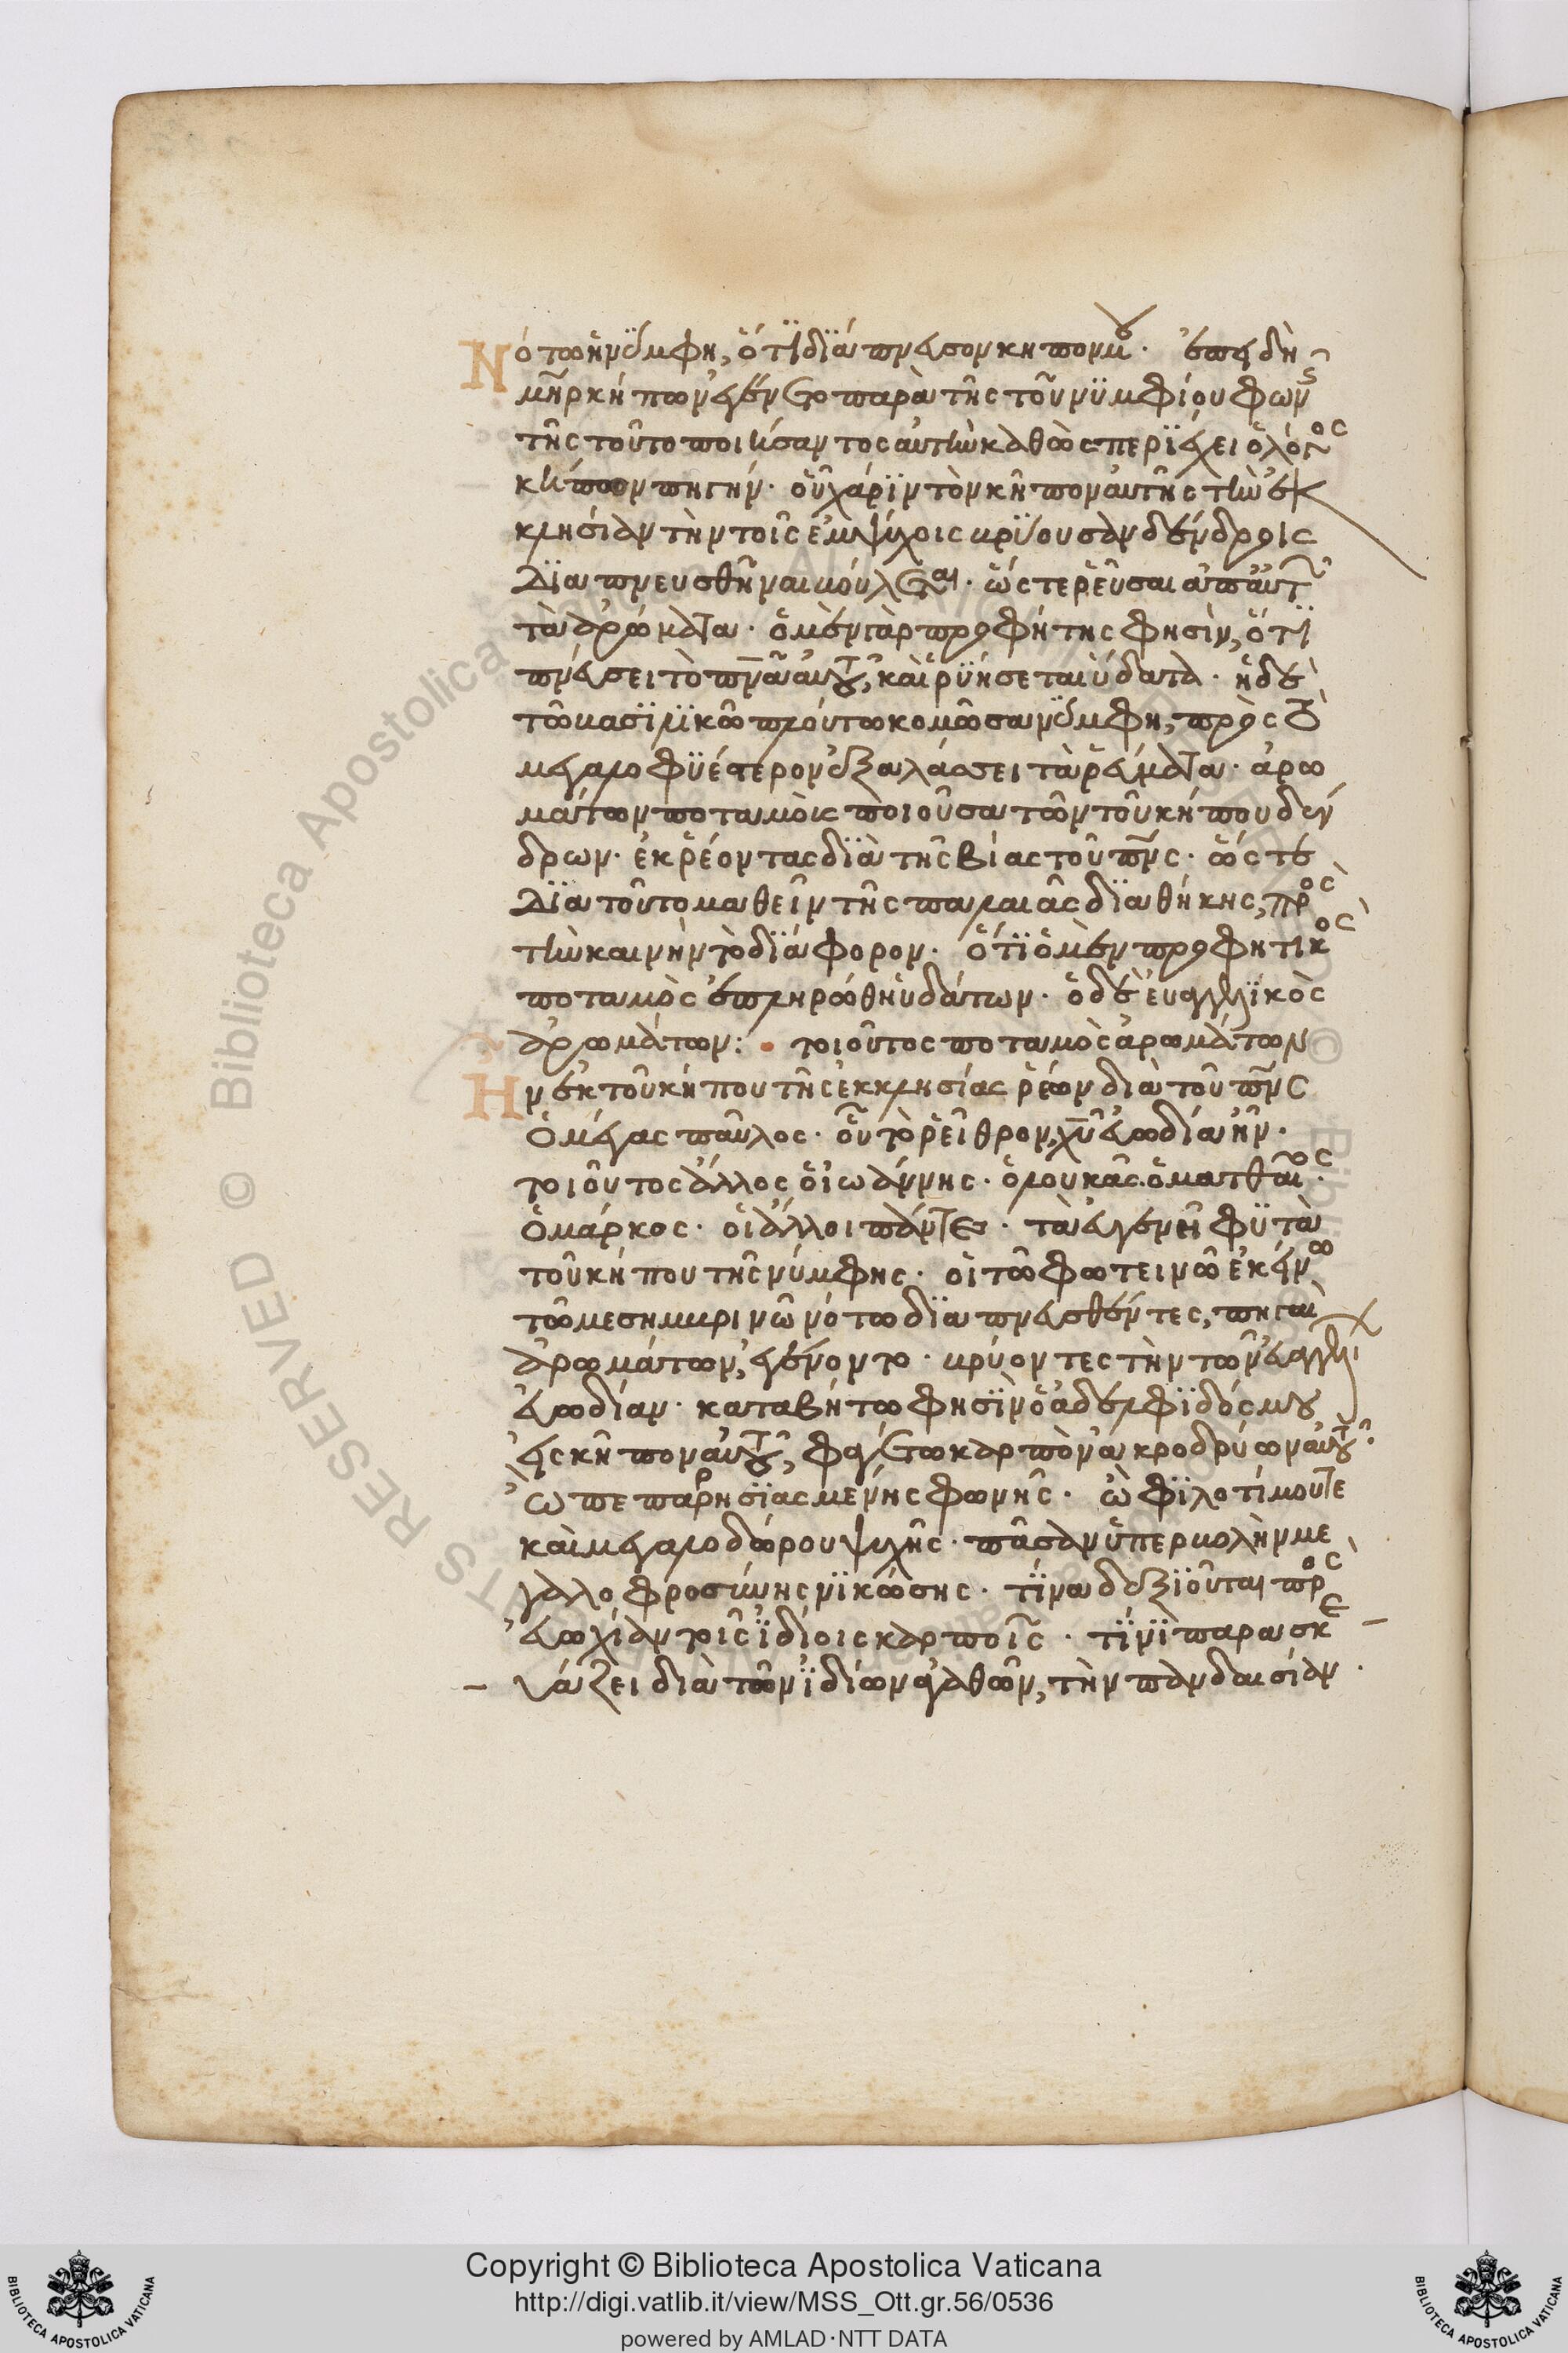 Νότω ἡ νύμφη, ὅτι διάπνευσον κῆπόν μου· ἐπειδὴ
μήτηρ κήπων ἐγένετο παρὰ τῆς τοῦ νυμφίου φων
τῆς τοῦτο ποιησάσης αὐτὴν καθὼς περιέχει ὁ λόγος
κήπων πηγήν· οὗ χάριν τὸν κῆπον αὐτῆς τὴν ἐκ
κλησίαν τὴν τοῖς ἐμψύχοις βρύουσαν δένδροις
διαπνευσθῆναι βούλεται· ὥστε ῥεῦσαι ἀπ' αὐτῶν
τὰ ἀρώματα· ὁ μὲν γὰρ προφήτης φησίν, ὅτι
πνεύσει τὸ πνα αὐτοῦ, καὶ ῥυήσεται ὕδατα· ἡ δὲ
τῶ βασιλικῶ πλούτω κομῶσα νύμφη, πρὸς τὸ
μεγαλοφυέστερον ἐξαλάσσει τὰ ῥεύματα· ἀρω
μάτων ποταμοὺς ποιοῦσα τῶν τοῦ κήπου δέν
δρων· ἐκρέοντας διὰ τῆς βίας τοῦ πνς· ὥστε
διὰ τοῦτο μαθεῖν τῆς παλαιᾶς διαθήκης, πρὸς
τὴν καινὴν τὸ διάφορον· ὅτι ὁ μὲν προφητικὸς
ποταμὸς ἐπληρώθη ὑδάτων· ὁ δὲ εὐαγγελικὸς
ἀρωμάτων: • τοιοῦτος ποταμὸς ἀρωμάτων
Ην ἐκ τοῦ κήπου τῆς ἐκκλησίας ῥέων διὰ τοῦ πνς
ὁ μέγας παῦλος· οὗ τὸ ῥεῖθρον, χυ εὐωδία ἦν·
τοιοῦτος ἄλλος ὁ ἰωάννης· ὁ λουκᾶς· ὁ ματθαῖος·
ὁ μάρκος· οἱ ἄλλοι πάντες· τὰ εὐγενῆ φυτὰ
τοῦ κήπου τῆς νύμφης· οἱ τῶ φωτεινῶ ἐκείνω
τῶ μεσημβρινῶ νότω διαπνευσθέντες, πηγαὶ
ἀρωμάτων, ἐγένοντο· βρύοντες τὴν τῶν εὐαγγελί
εὐωδίαν· καταβήτω φησὶν ὁ ἀδελφιδός μου
εἰς κῆπον αὐτοῦ, φαγέτω καρπὸν ἀκροδρύων αὐτοῦ·
ὢ πεπαρρησιασμένης φωνῆς· ὢ φιλοτίμου τε
καὶ μεγαλοδώρου ψυχῆς· πᾶσαν ὑπερβολὴν με
γαλοφροσύνης νικώσης· τίνα δεξιοῦται πρὸς
εὐωχίαν τοῖς ἰδίοις καρποῖς· τίνι παρασκε
υάζει διὰ τῶν ἰδίων ἀγαθῶν, τὴν πανδαισίαν·
Copyright © Biblioteca Apostolica Vaticana
http://digi.vatlib.it/view/MSS_Ott.gr.56/0536
powered by AMLAD·NTT DATA